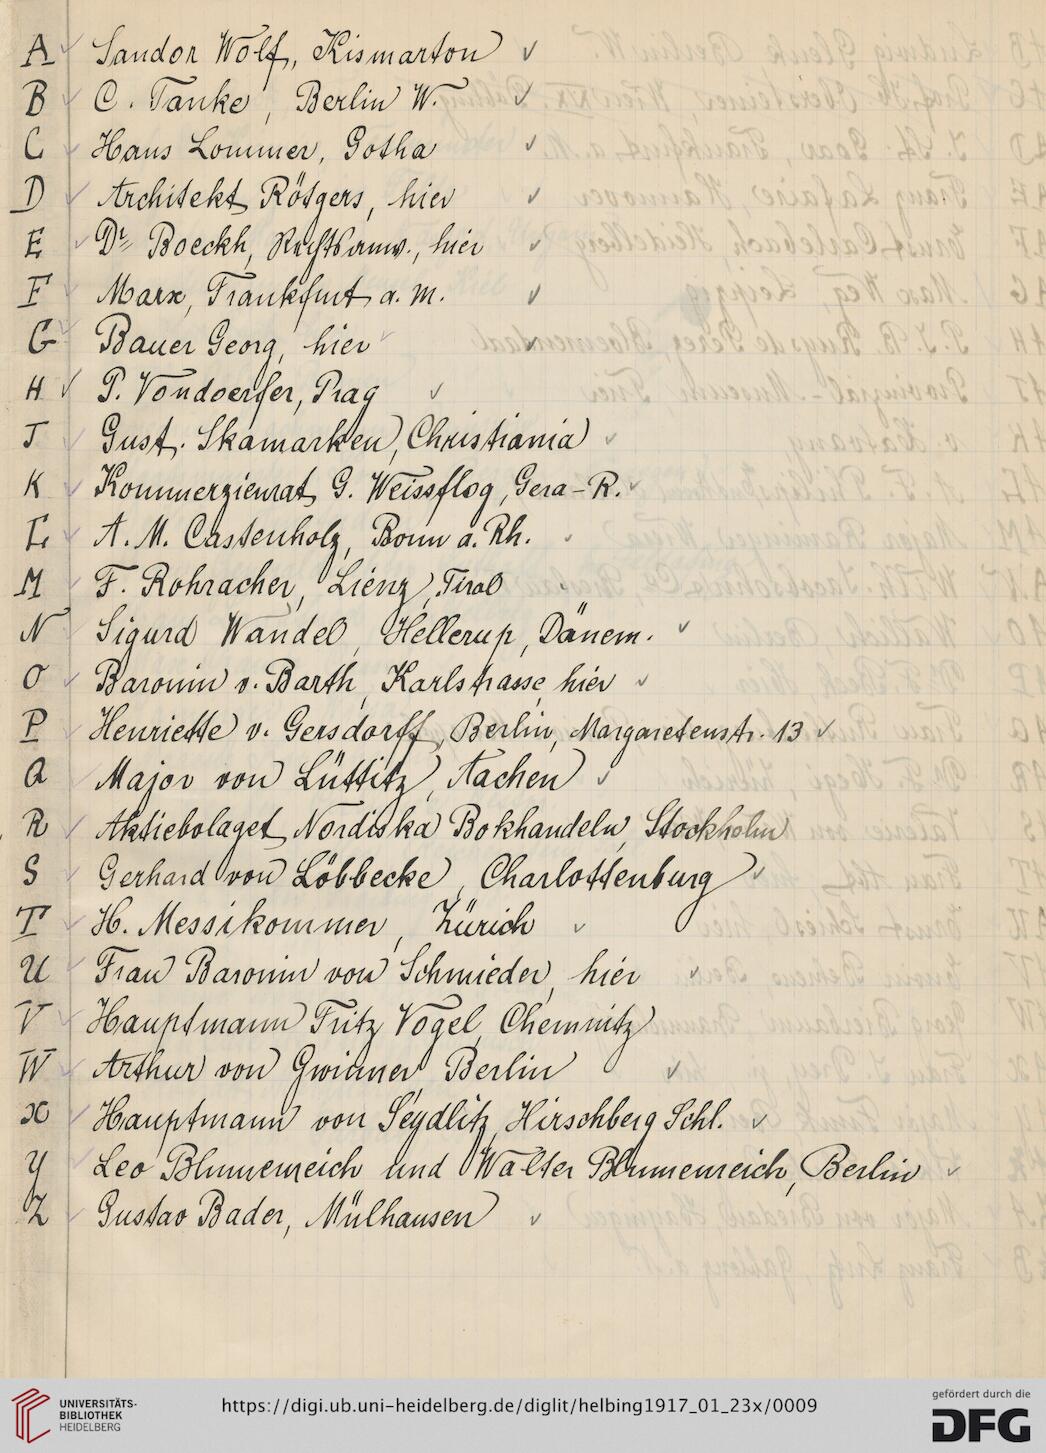 A Sandor Wolf, Kismarton
B C. Tanke, Berlin W.
C Hans Lommer, Gotha
D Architekt Rötgers, hier
E Dr. Boeckh, Rechtsanw., hier
F Marx, Frankfurt a. M.
G Bauer Georg, hier
H P. Vondoerfer, Prag
J Gust. Skamarken, Christiania
K Kommerzienrat G. Weissflog, Gera-R.
L A. M. Castenholz, Bonn a. Rh.
M F. Rohracher, Lienz, Tirol
N Sigurd Wandel, Hellerup, Dänem.
O Baronin v. Barth, Karlstrasse, hier
P Henriette v. Gersdorff, Berlin, Margaretenstr. 13
Q Major von Lüttitz, Aachen
R Aktiebolaget Nordiska Bokhandeln, Stockholm
S Gerhard von Löbbecke, Charlottenburg
T H. Messikommer, Zürich
U Frau Baronin von Schmieder, hier
V Hauptmann Fritz Vogel, Chemnitz
W Arthur von Gwinner, Berlin
X Hauptmann von Seydlitz, Hirschberg Schl.
Y Leo Blumenreich und Walter Blumenreich, Berlin
Z Gustav Bader, Mülhausen
UNIVERSITÄTS-
BIBLIOTHEK
HEIDELBERG
https://digi.ub.uni-heidelberg.de/diglit/helbing1917_01_23x/0009
gefördert durch die
DFG